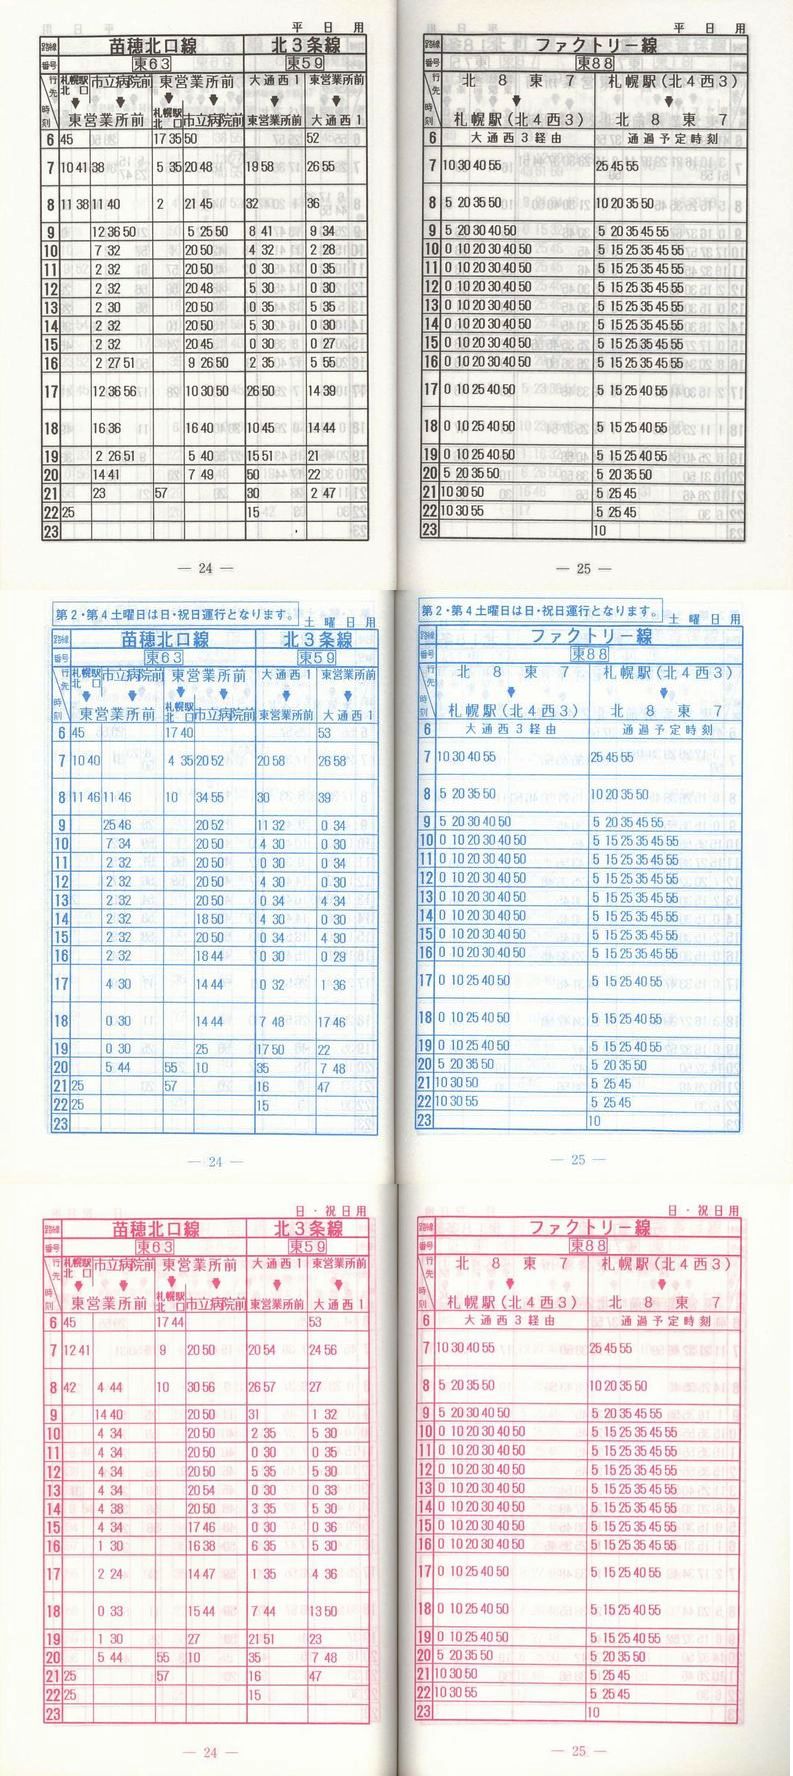 平日用
路線 苗穂北口線 北3条線
番号 東63 東59
行先 札幌駅北口 市立病院前 東営業所前 大通西1 東営業所前
時刻 東営業所前 札幌駅北口 市立病院前 東営業所前 大通西1
6 45 17 35 50 52
7 10 41 38 5 35 20 48 19 58 26 55
8 11 38 11 40 2 21 45 32 36
9 12 36 50 5 25 50 8 41 9 34
10 7 32 20 50 4 32 2 28
11 2 32 20 50 0 30 0 35
12 2 32 20 48 5 30 0 30
13 2 30 20 50 0 35 5 35
14 2 32 20 50 5 30 0 30
15 2 32 20 45 0 30 0 27
16 2 27 51 9 26 50 2 35 5 55
17 12 36 56 10 30 50 26 50 14 39
18 16 36 16 40 10 45 14 44
19 2 26 51 5 40 15 51 21
20 14 41 7 49 50 22
21 23 57 30 2 47
22 25 15
23
— 24 —
平日用
路線 ファクトリー線
番号 東88
行先 北8東7 札幌駅(北4西3)
時刻 札幌駅(北4西3) 北8東7
6 大通西3経由 通過予定時刻
7 10 30 40 55 25 45 55
8 5 20 35 50 10 20 35 50
9 5 20 30 40 50 5 20 35 45 55
10 0 10 20 30 40 50 5 15 25 35 45 55
11 0 10 20 30 40 50 5 15 25 35 45 55
12 0 10 20 30 40 50 5 15 25 35 45 55
13 0 10 20 30 40 50 5 15 25 35 45 55
14 0 10 20 30 40 50 5 15 25 35 45 55
15 0 10 20 30 40 50 5 15 25 35 45 55
16 0 10 20 30 40 50 5 15 25 35 45 55
17 0 10 25 40 50 5 15 25 40 55
18 0 10 25 40 50 5 15 25 40 55
19 0 10 25 40 50 5 15 25 40 55
20 5 20 35 50 5 20 35 50
21 10 30 50 5 25 45
22 10 30 55 5 25 45
23 10
— 25 —
第2・第4土曜日は日・祝日運行となります。 土曜日用
路線 苗穂北口線 北3条線
番号 東63 東59
行先 札幌駅北口 市立病院前 東営業所前 大通西1 東営業所前
時刻 東営業所前 札幌駅北口 市立病院前 東営業所前 大通西1
6 45 17 40 53
7 10 40 4 35 20 52 20 58 26 58
8 11 46 11 46 10 34 55 30 39
9 25 46 20 52 11 32 0 34
10 7 34 20 50 4 30 0 30
11 2 32 20 50 0 30 0 34
12 2 32 20 50 4 30 0 30
13 2 32 20 50 0 34 4 34
14 2 32 18 50 4 30 0 30
15 2 32 20 50 0 34 4 30
16 2 32 18 44 0 30 0 29
17 4 30 14 44 0 32 1 36
18 0 30 14 44 7 48 17 46
19 0 30 25 17 50 22
20 5 44 55 10 35 7 48
21 25 57 16 47
22 25 15
23
— 24 —
第2・第4土曜日は日・祝日運行となります。 土曜日用
路線 ファクトリー線
番号 東88
行先 北8東7 札幌駅(北4西3)
時刻 札幌駅(北4西3) 北8東7
6 大通西3経由 通過予定時刻
7 10 30 40 55 25 45 55
8 5 20 35 50 10 20 35 50
9 5 20 30 40 50 5 20 35 45 55
10 0 10 20 30 40 50 5 15 25 35 45 55
11 0 10 20 30 40 50 5 15 25 35 45 55
12 0 10 20 30 40 50 5 15 25 35 45 55
13 0 10 20 30 40 50 5 15 25 35 45 55
14 0 10 20 30 40 50 5 15 25 35 45 55
15 0 10 20 30 40 50 5 15 25 35 45 55
16 0 10 20 30 40 50 5 15 25 35 45 55
17 0 10 25 40 50 5 15 25 40 55
18 0 10 25 40 50 5 15 25 40 55
19 0 10 25 40 50 5 15 25 40 55
20 5 20 35 50 5 20 35 50
21 10 30 50 5 25 45
22 10 30 55 5 25 45
23 10
— 25 —
日・祝日用
路線 苗穂北口線 北3条線
番号 東63 東59
行先 札幌駅北口 市立病院前 東営業所前 大通西1 東営業所前
時刻 東営業所前 札幌駅北口 市立病院前 東営業所前 大通西1
6 45 17 44 53
7 12 41 9 20 50 20 54 24 56
8 42 4 44 10 30 56 26 57 27
9 14 40 20 50 31 1 32
10 4 34 20 50 2 35 5 30
11 4 34 20 50 0 30 0 35
12 4 34 20 50 5 35 5 30
13 4 34 20 54 0 30 0 33
14 4 38 20 50 3 35 5 30
15 4 34 17 46 0 30 0 36
16 1 30 16 38 6 35 5 30
17 2 24 14 47 1 35 4 36
18 0 33 15 44 7 44 13 50
19 1 30 27 21 51 23
20 5 44 55 10 35 7 48
21 25 57 16 47
22 25 15
23
— 24 —
日・祝日用
路線 ファクトリー線
番号 東88
行先 北8東7 札幌駅(北4西3)
時刻 札幌駅(北4西3) 北8東7
6 大通西3経由 通過予定時刻
7 10 30 40 55 25 45 55
8 5 20 35 50 10 20 35 50
9 5 20 30 40 50 5 20 35 45 55
10 0 10 20 30 40 50 5 15 25 35 45 55
11 0 10 20 30 40 50 5 15 25 35 45 55
12 0 10 20 30 40 50 5 15 25 35 45 55
13 0 10 20 30 40 50 5 15 25 35 45 55
14 0 10 20 30 40 50 5 15 25 35 45 55
15 0 10 20 30 40 50 5 15 25 35 45 55
16 0 10 20 30 40 50 5 15 25 35 45 55
17 0 10 25 40 50 5 15 25 40 55
18 0 10 25 40 50 5 15 25 40 55
19 0 10 25 40 50 5 15 25 40 55
20 5 20 35 50 5 20 35 50
21 10 30 50 5 25 45
22 10 30 55 5 25 45
23 10
— 25 —